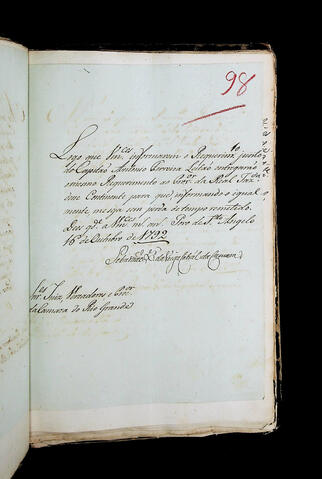 98
Logo que Vm.ces informarem o Requerim.to junto
do Capitão Antonio Ferreira Leitão entregará
o mesmo Requerimento ao Pror. da Real Fazda
deste Continente para que, informando o igual
mente me seja sem perda de tempo remetido.
Deos gde. a Vm.ces m. an. Povo de Sto. Angelo
16 de Outubro de 1792
Sebastião X.er da Veiga Cabral da Camara
Snr.es Juiz, Vereadores e Pror.
da Camara do Rio Grande